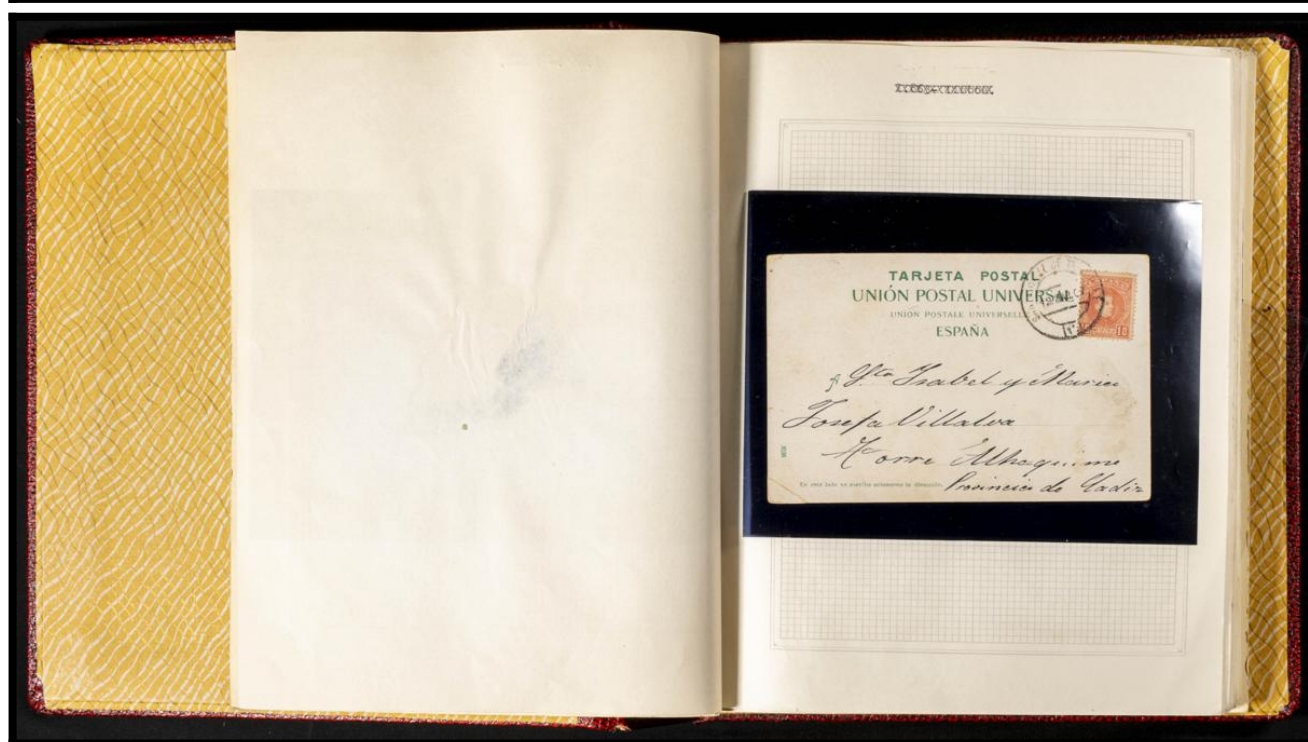 TARJETA POSTAL
UNIÓN POSTAL UNIVERSAL
UNION POSTALE UNIVERSELLE
ESPAÑA
10
Sta Isabel y Maria
Josefa Villalva
Torre Alhaquime
En este lado se escribe solamente la dirección.
Provincia de Cadiz